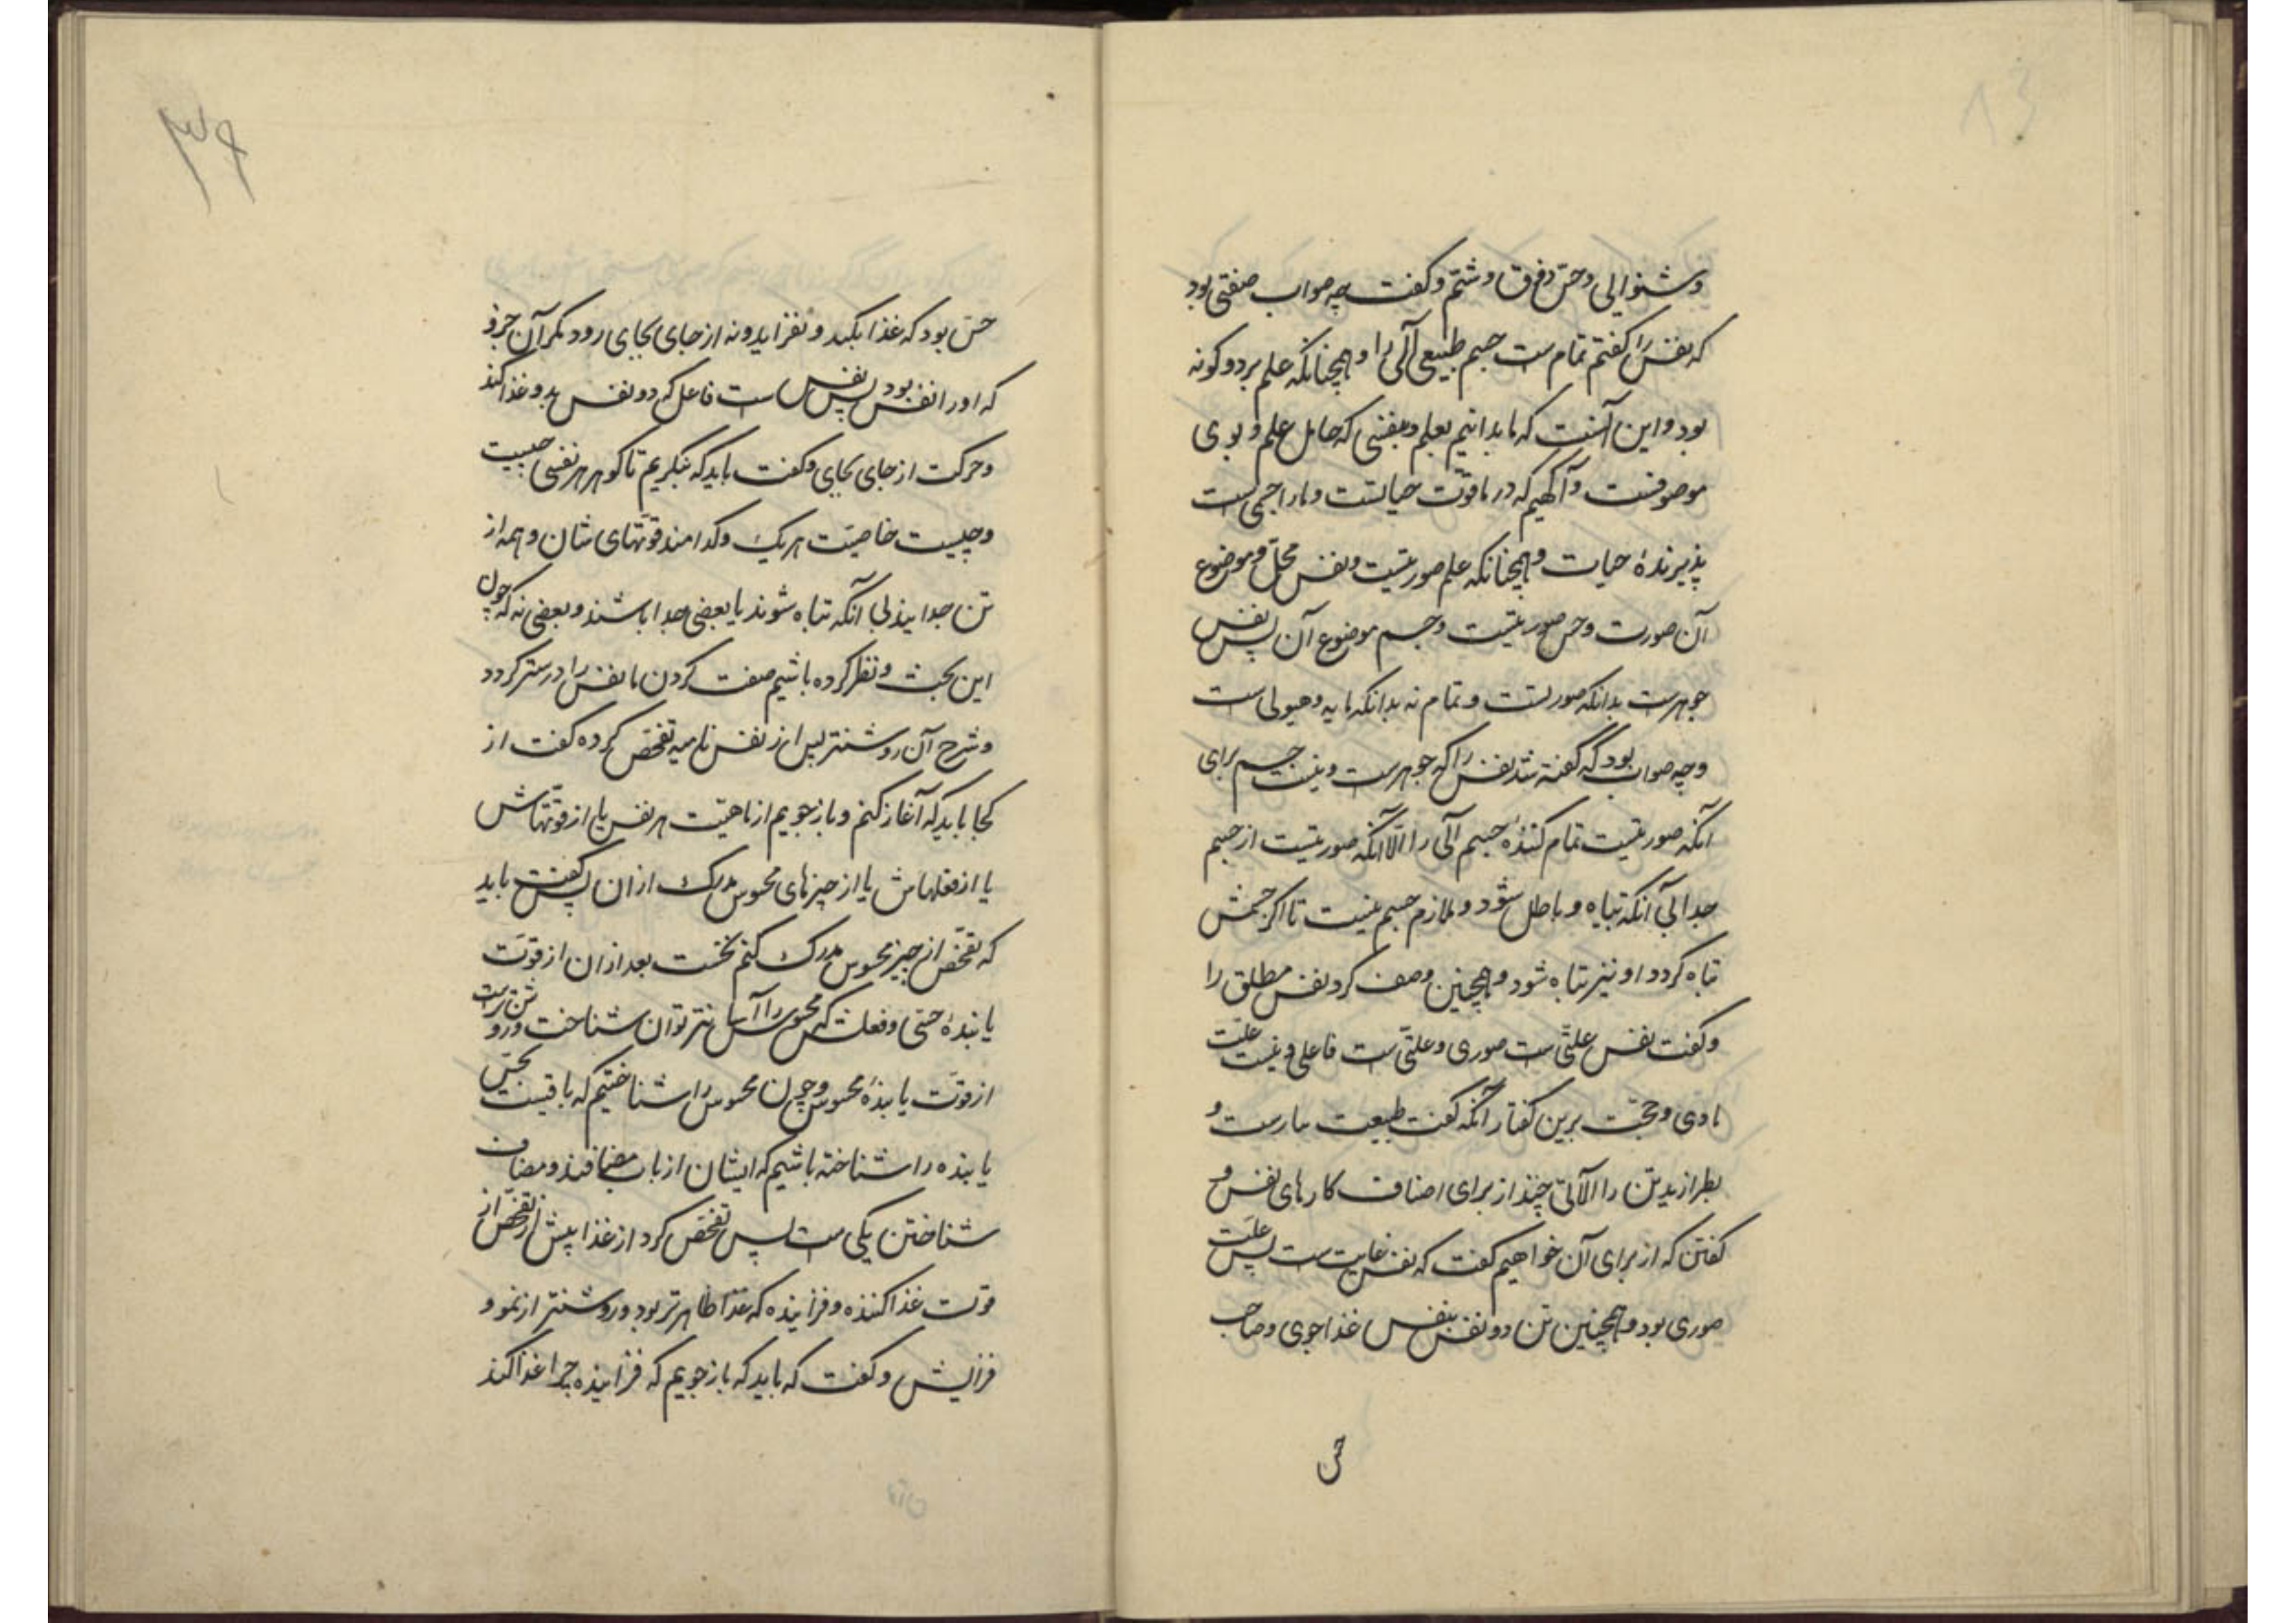 و شنوایی و حسّ و ذوق و شمّ و گفت چه صواب صفتی بود
که نفس را گفتم تمام ست جسم طبیعی آلی را و همچنانکه علم بر دو گونه
بود و این آنست که ما بدانیم بعلم و بنفسی که حامل علم و بوی
موصوفست و آگهیم که در ما قوّت حیاتست و ما را جسمی است
پذیرندهٔ حیات و همچنانکه علم صورتیست و نفس محلّ و موضوع
آن صورت و حس صورتیست و جسم موضوع آن پس نفس
جوهرست بدانکه صورتست و تمام نه بدانکه مایه و هیولی است
و چه صواب بود که گفته شد نفس را که جوهرست و نیست جسم برای
آنکه صورتیست تمام کنندهٔ جسم آلی را الّا آنکه صورتیست از جسم
جدا بی آنکه تباه و باطل شود و ملازم جسم نیست تا اگر جسمش
تباه گردد او نیز تباه شود و همچنین وصف کرد نفس مطلق را
و گفت نفس علتی ست صوری و علتی ست فاعلی و نیست علت
مادی و حجت برین گفتار آنکه گفت طبیعت بیارست و
بطرازید تن را آلاتی چند از برای اصناف کارهای نفس و
گفتن که از برای آن خواهیم گفت که نفس غایت ست پس علت
صوری بود و همچنین تن دو نفس بنفس غذاجوی و صاحب
حس
۳۶
حس بود که غذا بگیرد و نفزاید و نه از جای بجای رود مگر آن جرم
که او را نفس بود پس نفس ست فاعل که دو نفس بدو غذا کند
و حرکت از جای بجای و گفت باید که بنگریم تا گوهر هر نفسی چیست
و چیست خاصیّت هر یک و کدامند قوّتهای شان و همه از
تن جدایند بی آنکه تباه شوند یا بعضی جدا باشند و بعضی نه که چون
این بحث و نظر کرده باشیم صفت کردن ما نفس را درستر گردد
و شرح آن روشنتر پس از نفس نامیه تفحّص کرده گفت از
کجا باید که آغاز کنم و بازجویم از ماهیّت هر نفس یا از قوّتهاش
یا از فعلهاش یا از چیزهای محسوس مدرک ازان پس گفت باید
که تفحّص از چیز محسوس مدرک کنم نخست بعد ازان از قوّت
یابندهٔ حسّی و فعلش که محسوس را آسانتر توان شناخت و روشن‌ترست
از قوّت یابندهٔ محسوس و چون محسوس را شناختیم که یافتیست بحسّ
یابنده را شناخته باشیم که ایشان از باب مضافند و مضاف
شناختن یکی ست پس تفحّص کرد از غذا پیش از تفحّص از
قوّت غذا کننده و فزاینده که غذا ظاهرتر بود و روشنتر از نمو و
فزایش و گفت که باید که بازجویم که فزاینده چرا غذا کند